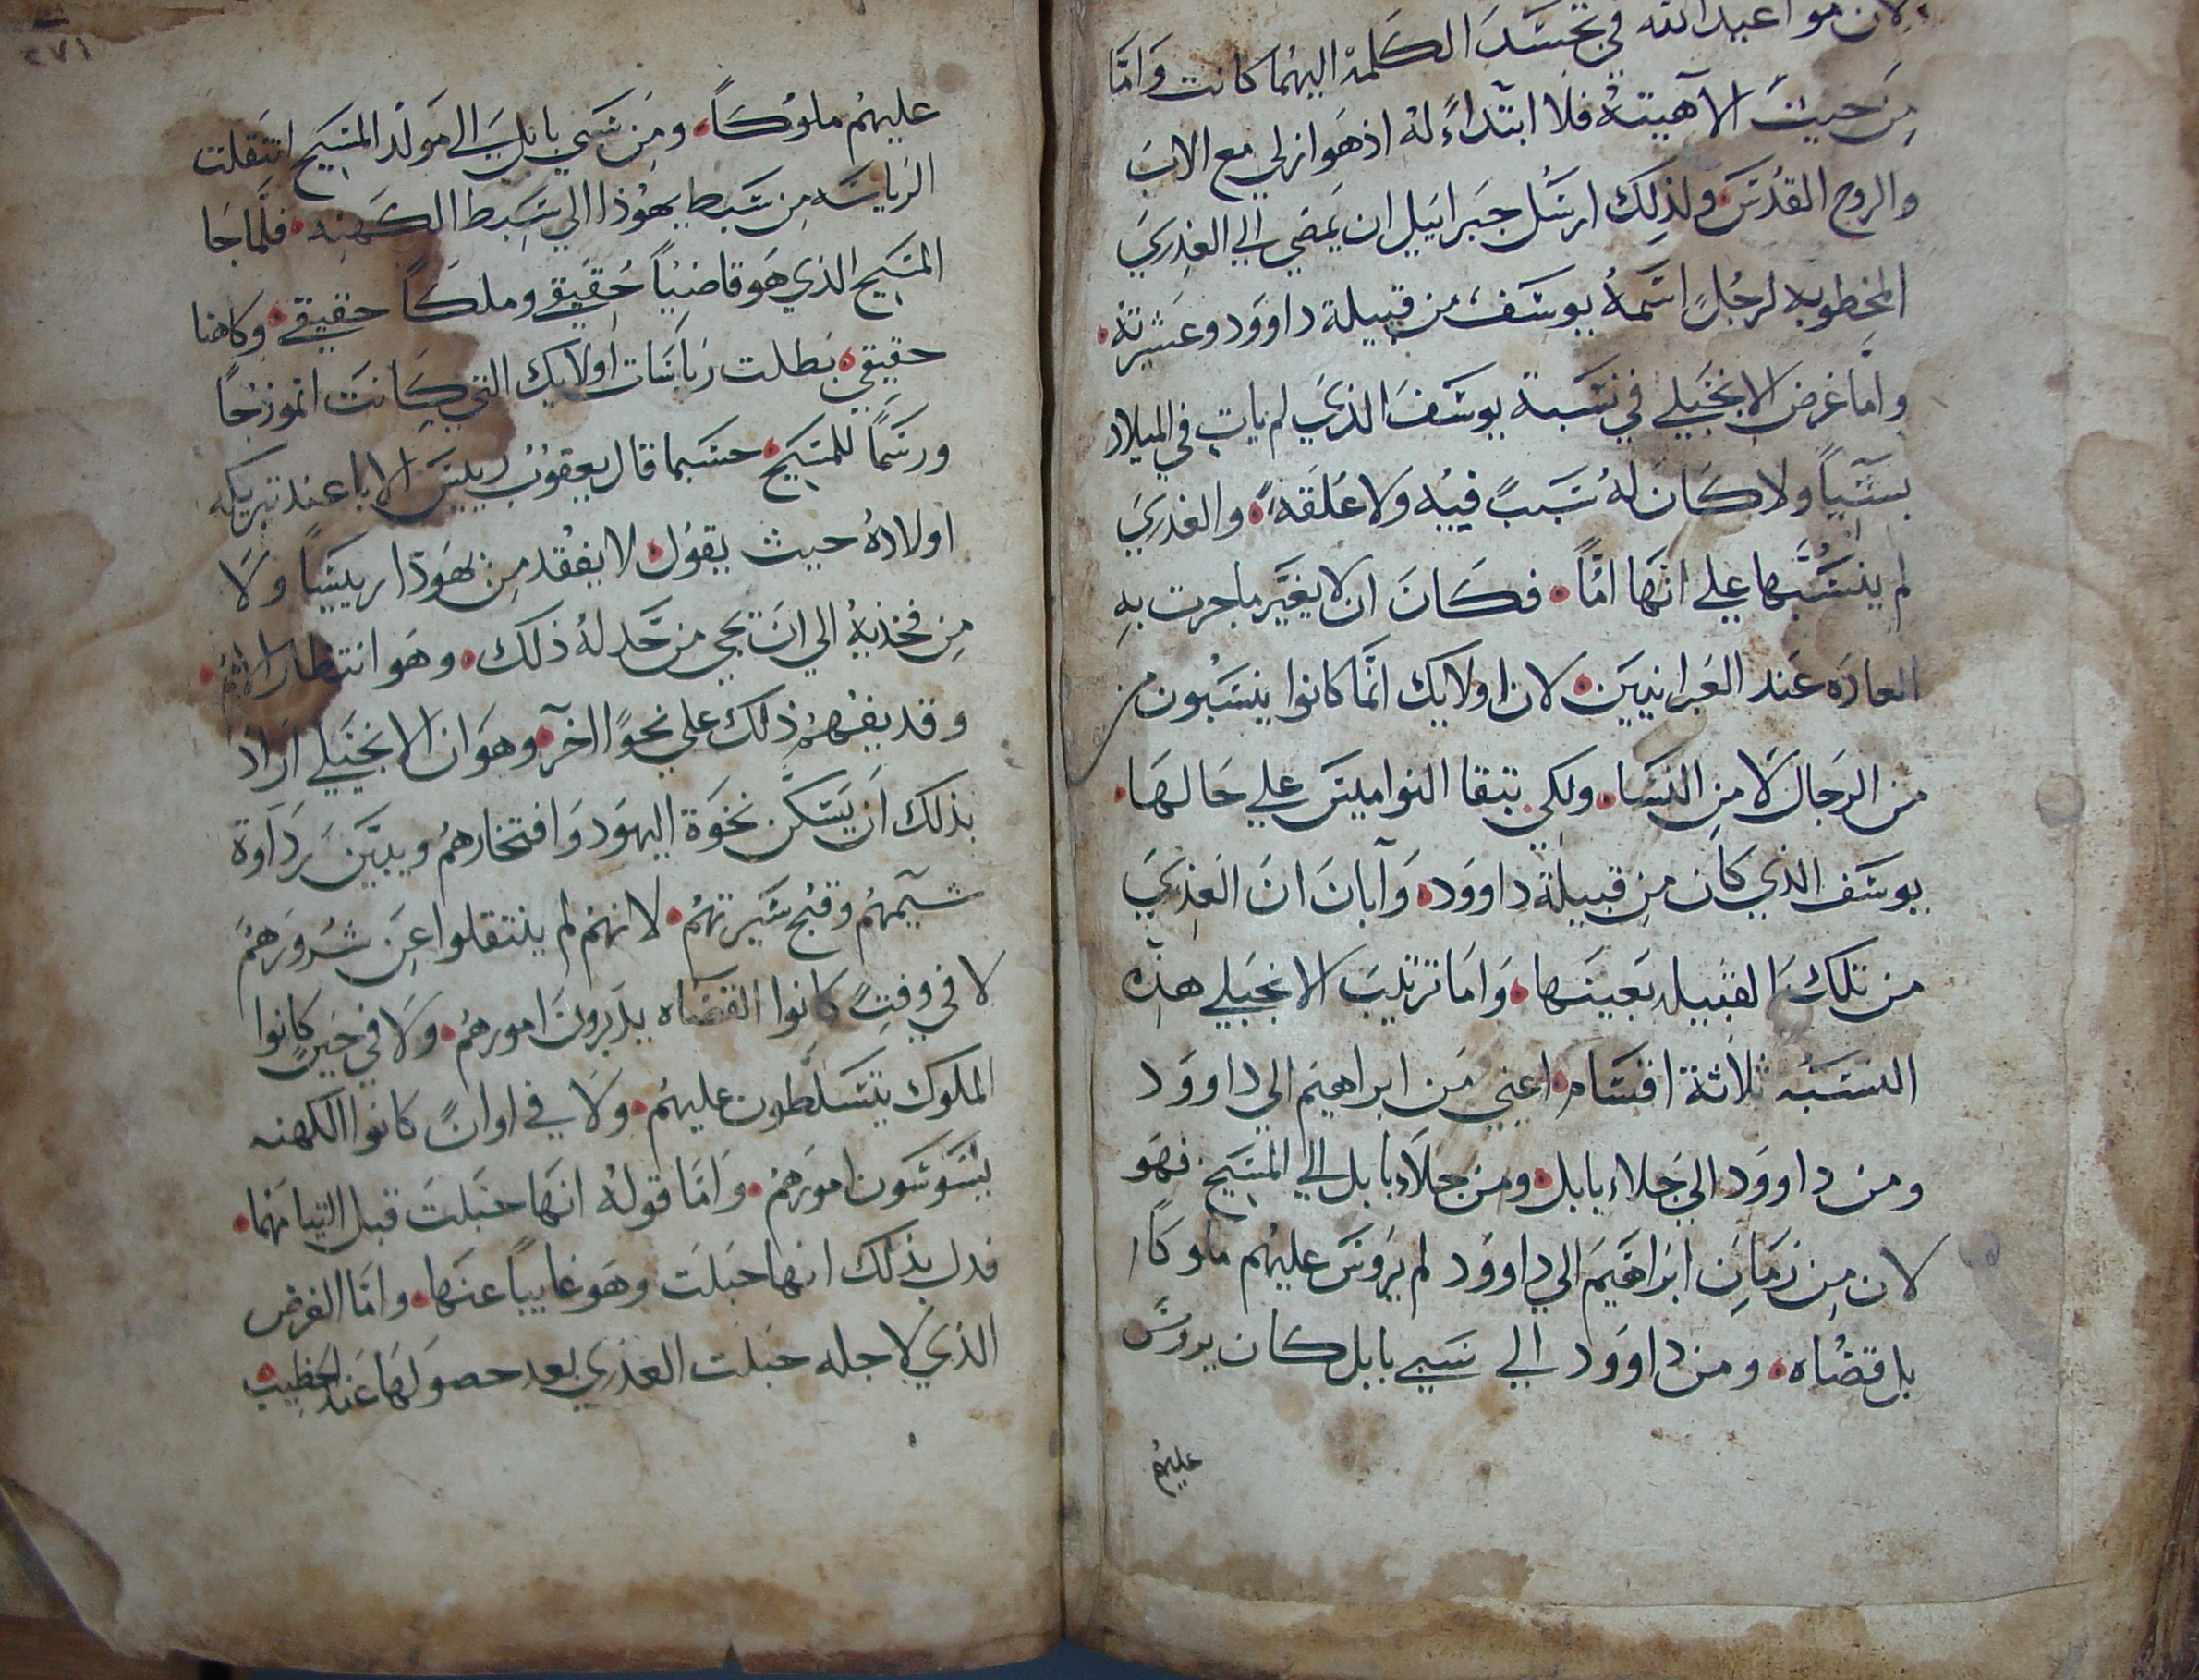 لان مواعيد الله في تجسد الكلمة اليهما كانت وامّا
من حيث الاهيته فلا ابتداءً له اذ هو ازلي مع الاب
والروح القدس ولذلك ارسل جبراييل ان يمضي الي العذري
المخطوبه لرجُلٍ اسمهُ يوسف من قبيلة داوود وعشيرته
وامّا غرض الانجيلي في نسبة يوسف الذي لم يات في الميلاد
بشياً ولا كان لهُ سببً فيه ولا علقه والعذري
لم ينسبها علي انها امّاً فكان ان لا يغيّر ما جرت به
العاده عند العبرانيين لان اولايك انما كانوا ينسبون من
من الرجال لا من النسا ولكي تبقا النواميس علي حالها
يوسف الذي كان من قبيلة داوود وابان ان العذري
من تلك القبيله بعينها واما ترتيب الانجيلي هذه
النسبه ثلاثة اقسام اعني من ابراهيم الي داوود
ومن داوود الي جلاء بابل ومن جلاء بابل الي المسيح فهو
لان من زمان ابراهيم الي داوود لم يروس عليهم ملوكاً
بل قضاه ومن داوود الي سبي بابل كان يروس
عليهم
٢٧١
عليهم ملوكاً ومن سبي بابل الي مولد المسيح انتقلت
الرياسه من سبط يهوذا الي سبط الكهنه فلما جا
المسيح الذي هو قاضياً حقيقي وملكاً حقيقي وكاهنا
حقيقي بطلت رياسات اولايك التي كانت انموذجاً
ورسماً للمسيح حسبما قال يعقوب رييس الابا عند تبريكه
اولاده حيث يقول لا يفقد من يهوذا رييساً ولا
من فخذيه الي ان يجي من حد له ذلك وهو انتظار الامم
وقد يفهم ذلك علي نحوًا اخر وهو ان الانجيلي اراد
بذلك ان يسكن نخوة اليهود وافتخارهم ويبيّن رداوة
شيمهم وقبح سيرتهم لانهم لم ينتقلوا عن شرورهم
لا في وقتٍ كانوا القضاه يدبرون امورهم ولا في حين كانوا
الملوك يتسلطون عليهم ولا في اوانً كانوا الكهنه
يسوسون امورهم واما قوله انها حبلت قبل التيامهما
فدل بذلك انها حبلت وهو غايباً عنها واما الغرض
الذي لاجله حبلت العذري بعد حصولها عند الخطيب